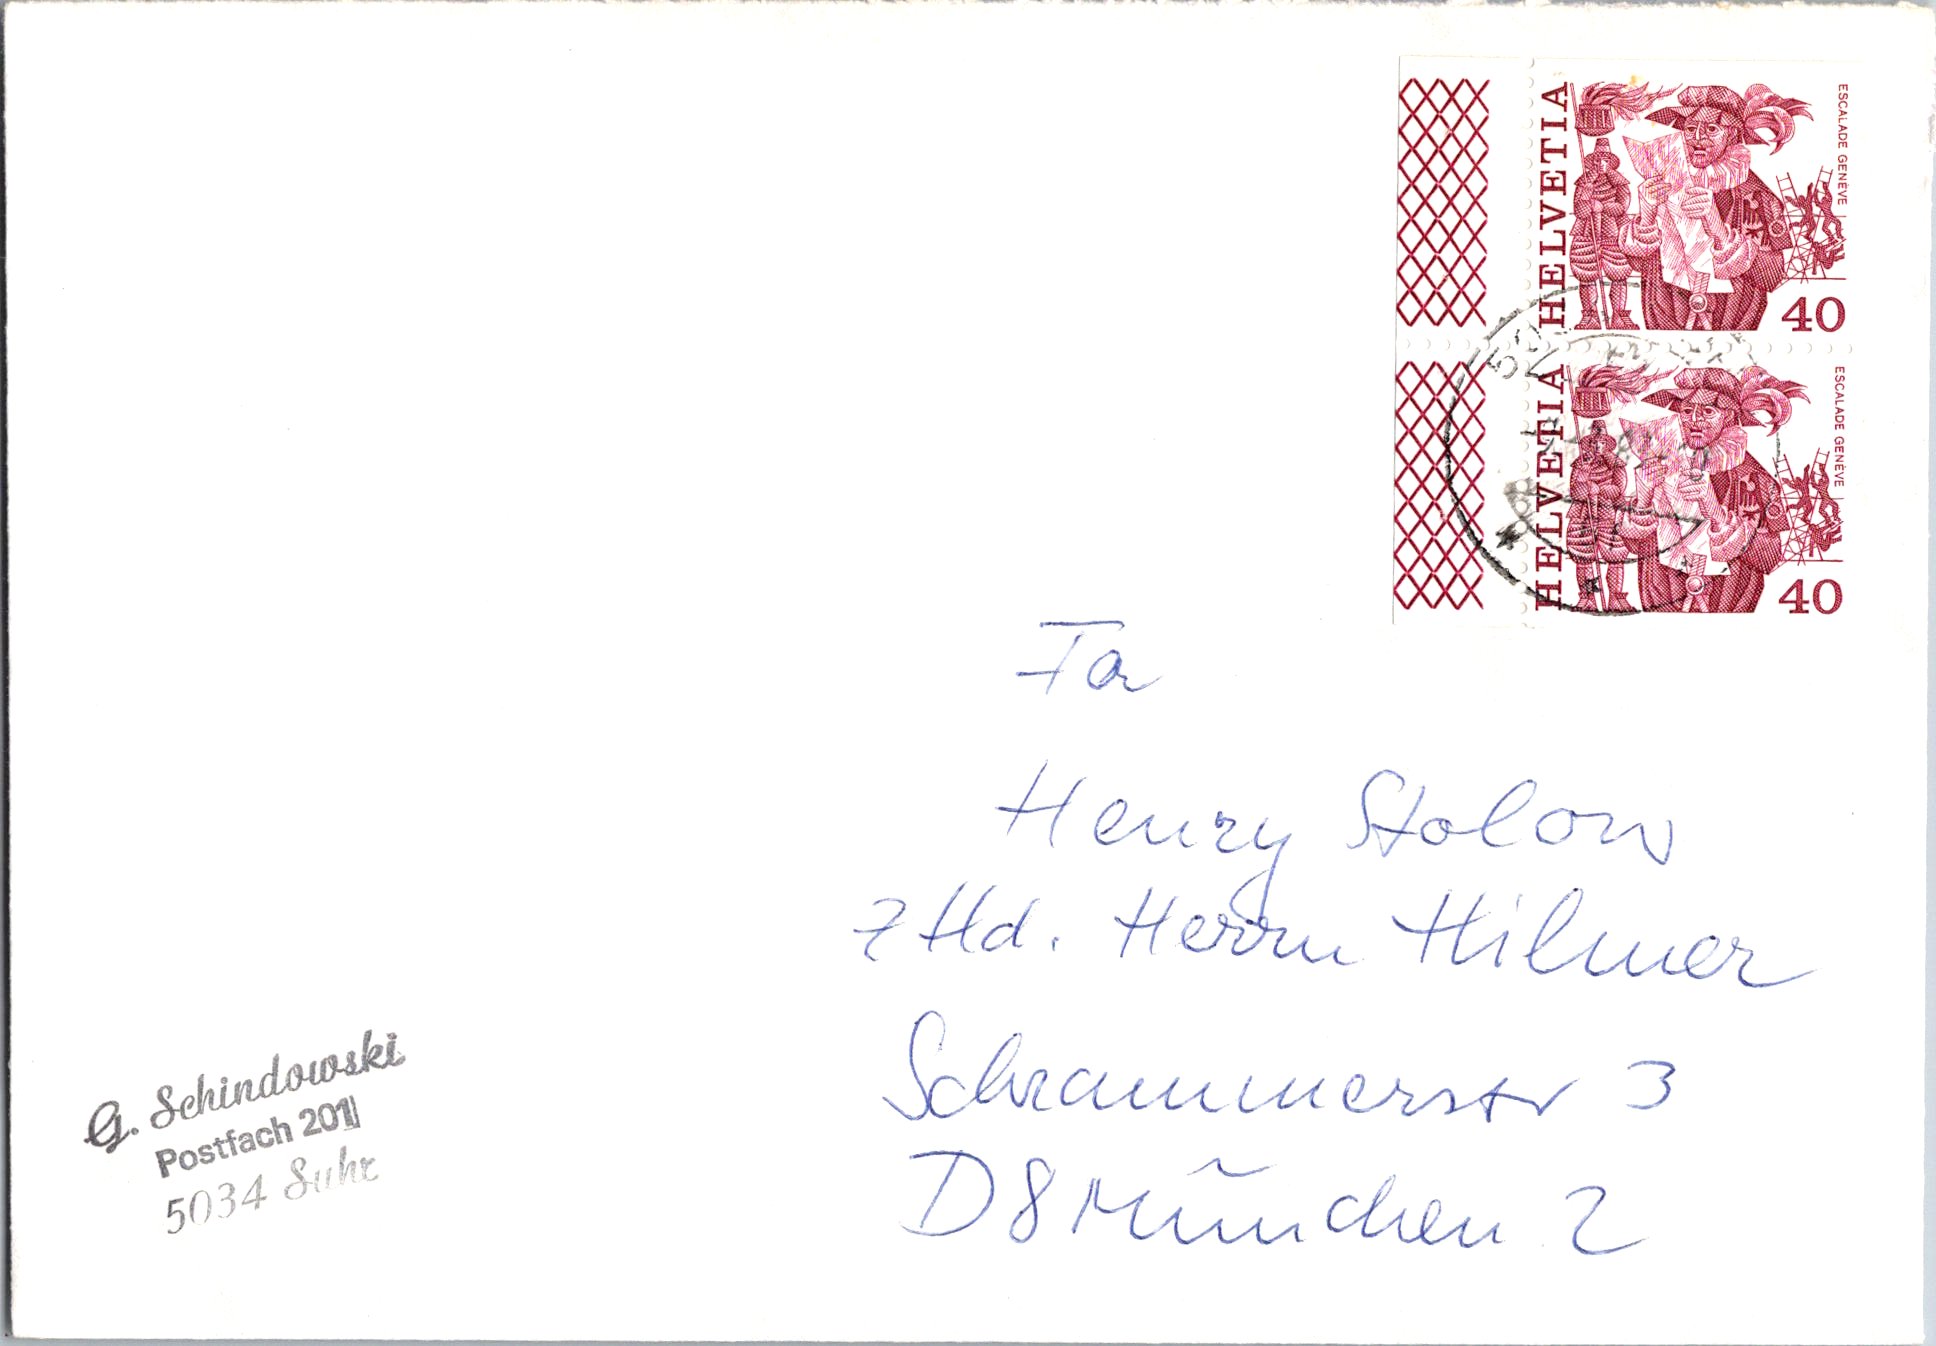 HELVETIA
ESCALADE GENÈVE
40
HELVETIA
ESCALADE GENÈVE
40
Fa
Henry Stolow
z Hd. Herrn Hilmer
Schrammerstr 3
D 8 München 2
G. Schindowski
Postfach 201
5034 Suhr